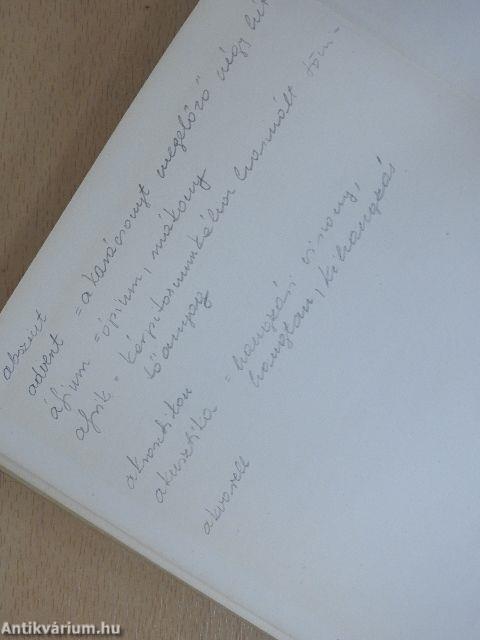 abszint
advent = a karácsonyt megelőző négy hét
áfium = ópium, mákony
afrik = kárpitosmunkához használt töm-
lőanyag
akrosztikon
akusztika = hangzási viszony,
hangtan, kihangzás
akvarell
Antikvárium.hu